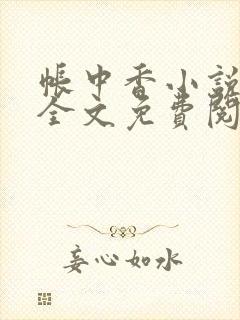 帳中香小説
全文免費閱
妄心如水